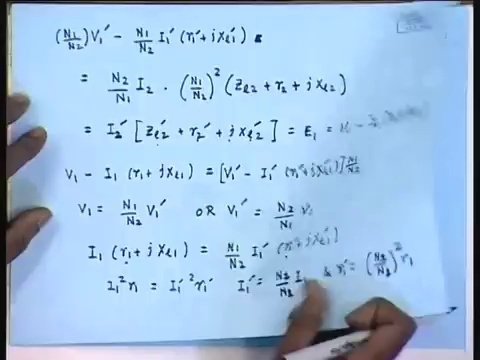 (N1/N2)V1' - N1/N2 I1' (r1' + jxl1')
= N2/N1 I2 . (N1/N2)^2 (Zl2 + r2 + jxl2)
= I2' [Zl2' + r2' + jxl2'] = E1 =
V1 - I1 (r1 + jxl1) = [V1' - I1' (r1' + jxl1')] N1/N2
V1 = N1/N2 V1' OR V1' = N2/N1
I1 (r1 + jxl1) = N1/N2 I1' (r1' + jxl1')
I1^2 r1 = I1'^2 r1' I1' = I1 & r1' = r1